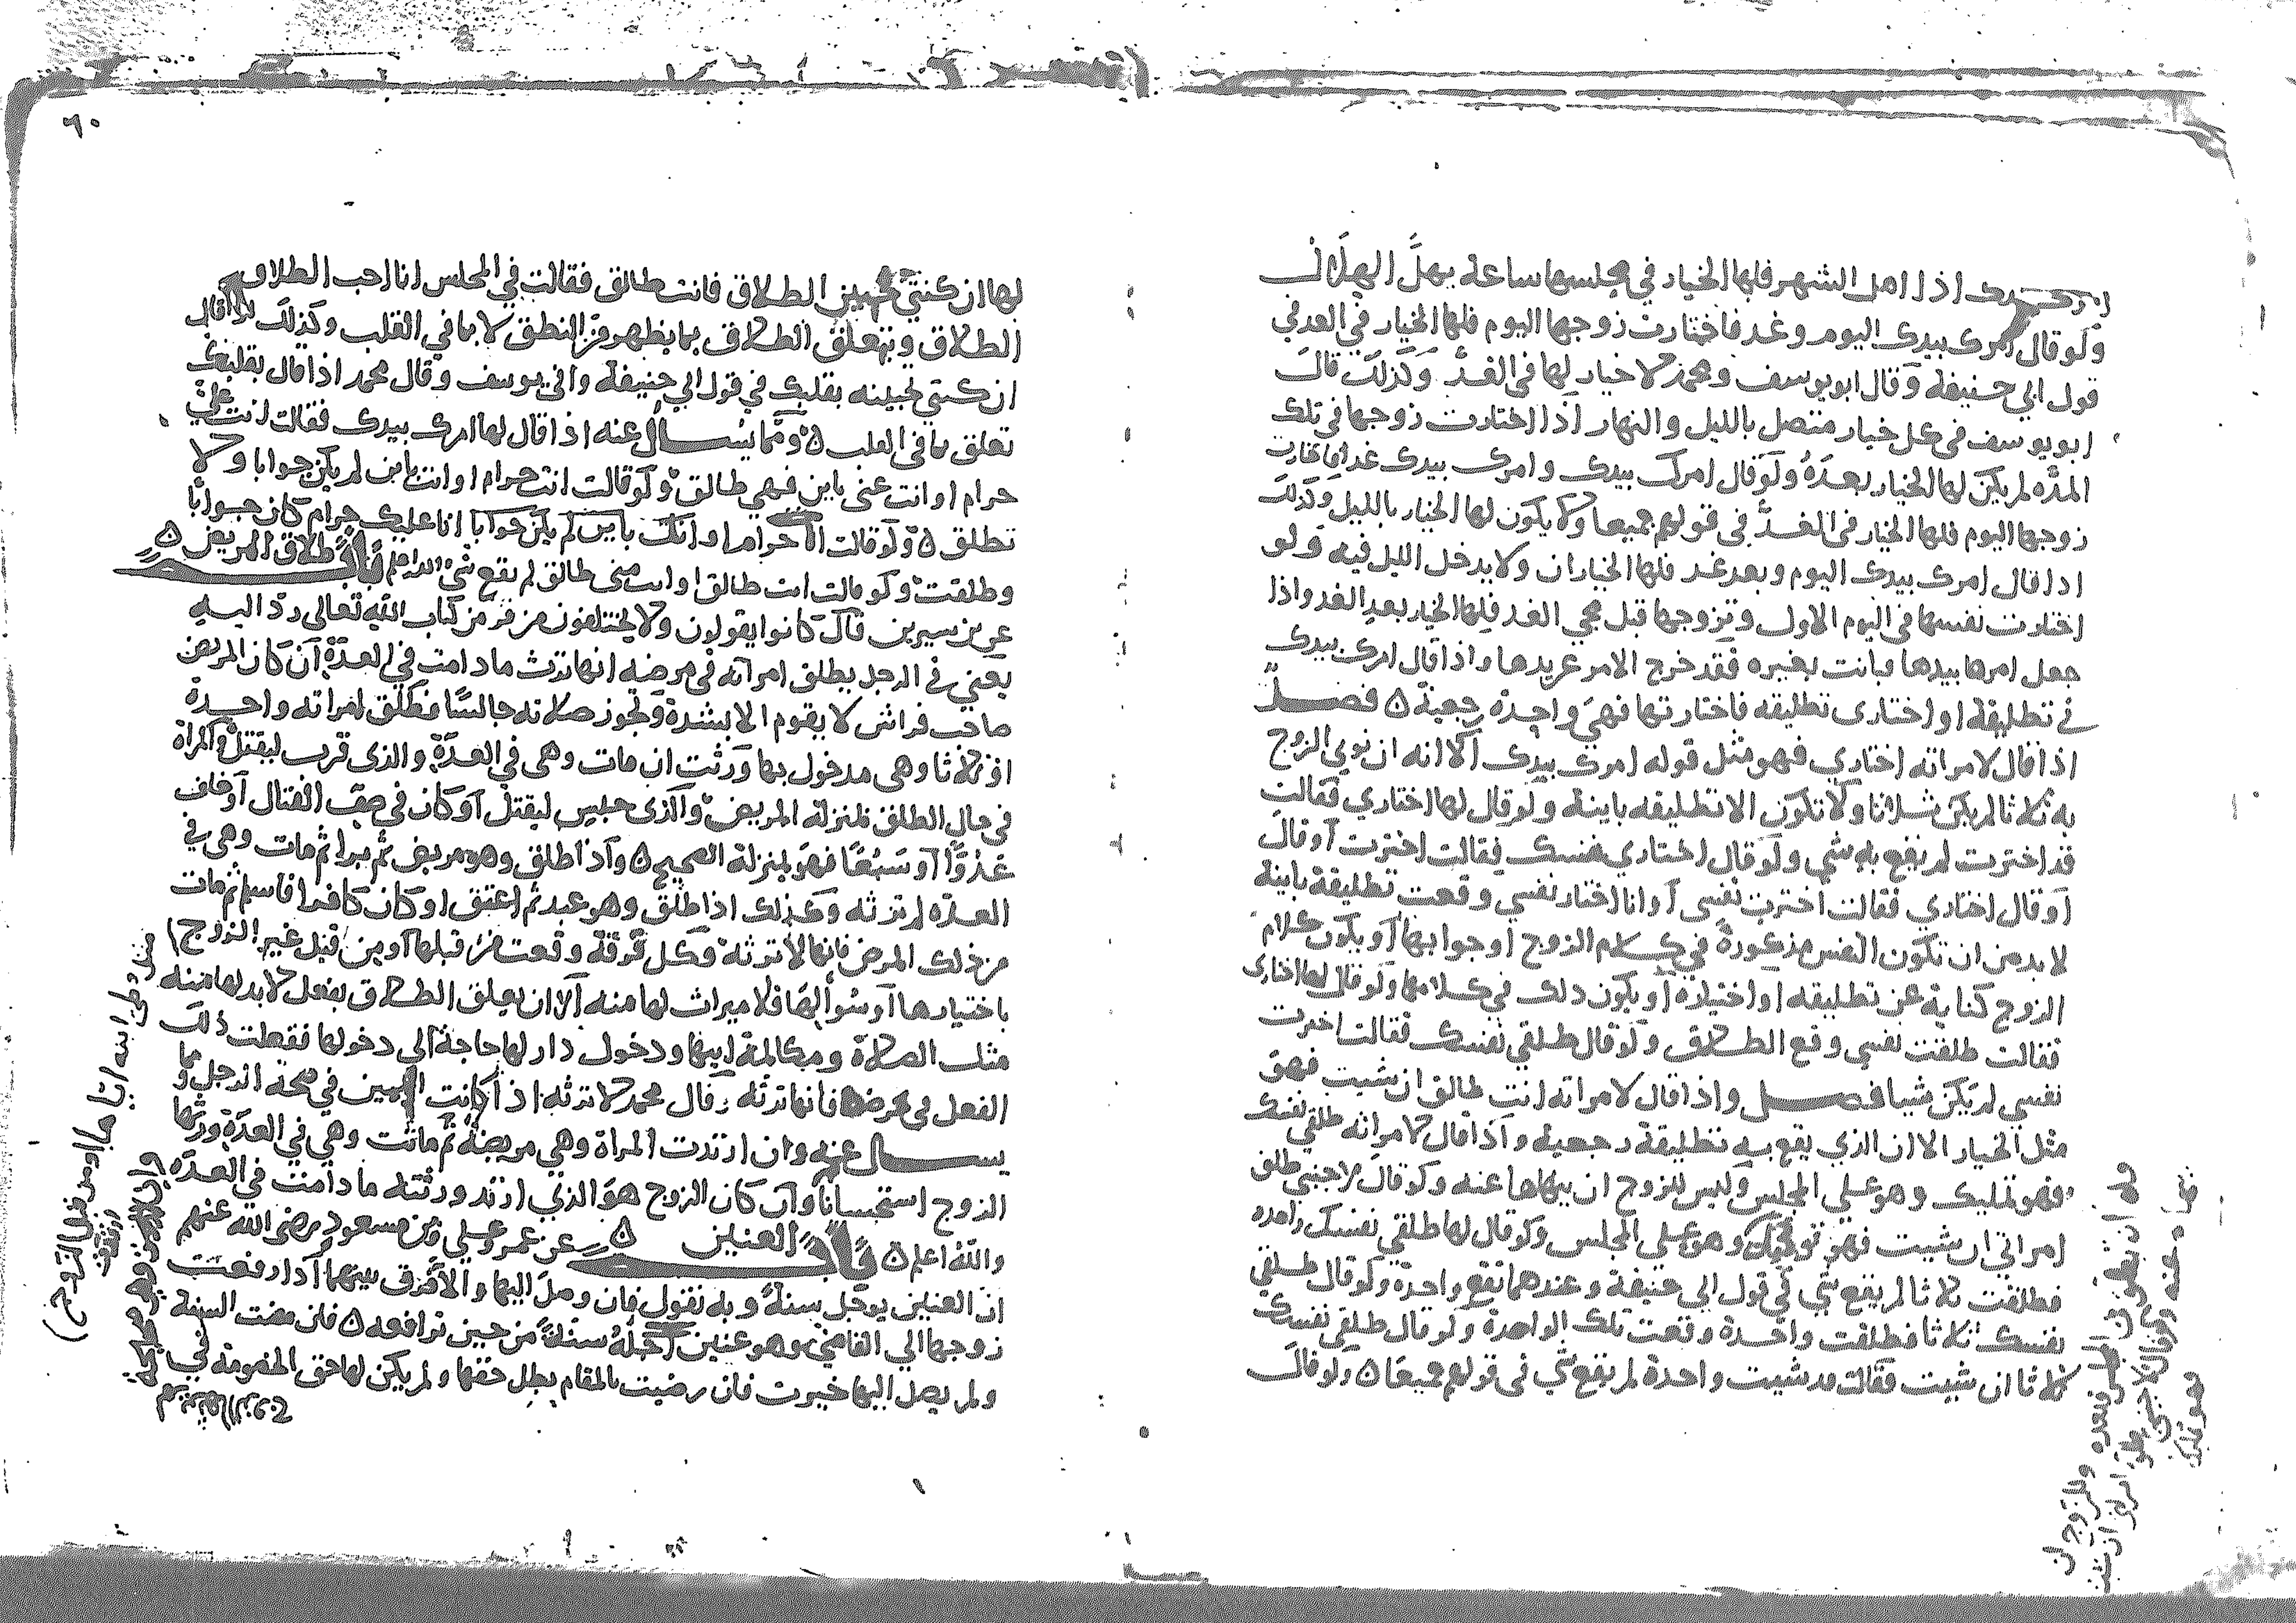 اذا اهل الشهر فلها الخيار في مجلسها ساعة يهل الهلال
ولو قال امرك بيدك اليوم وغد فاختارت زوجها اليوم فلها الخيار في الغد في
قول ابي حنيفة وقال ابو يوسف ومحمد لا خيار لها في الغد وكذلك قال
ابو يوسف في كل خيار متصل بالليل والنهار اذا اختارت زوجها في تلك
المده لم يكن لها الخيار بعده ولو قال امرك بيدك وامرك بيدك غدا فاختارت
زوجها اليوم فلها الخيار في الغد في قولهم جميعا ولا يكون لها الخيار بالليل وكذلك
اذا قال امرك بيدك اليوم وبعد غد فلها الخياران ولا يدخل الليل فيه ولو
اختارت نفسها في اليوم الاول وتزوجها قبل مجي الغد فلها الخيار بعد الغد واذا
جعل امرها بيدها وبانت بغيره فقد خرج الامر عن يدها واذا قال امرك بيدك
في تطليقة او اختاري تطليقه فاختارتها فهي واحدة رجعية ٥ فصل
اذا قال لامراته اختاري فهو مثل قوله امرك بيدك الا انه ان نوي الزوج
به ثلاثا لم يكن ثلاثا ولا تكون الا تطليقه باينة ولو قال لها اختاري فقالت
قد اخترت لم يقع به شي ولو قال اختاري نفسك فقالت اخترت او قال
او قال اختاري فقالت اخترت نفسي او انا اختار نفسي وقعت تطليقة باينة
لا بد من ان تكون النفس مذكورة في كلام الزوج او جوابها او يكون كلام
الزوج كناية عن تطليقه او اختيارة او يكون ذلك في كلامها ولو قال لها اختاري
فقالت طلقت نفسي وقع الطلاق ولو قال طلقي نفسك فقالت اخترت
نفسي لم يكن شيا فصل واذا قال لامراته انت طالق ان شيت فهو
مثل الخيار الا ان الذي يقع به تطليقة رجعية واذا قال لامراته طلقي نفسك
فهو تمليك وهو علي المجلس وليس للزوج ان ينهاها عنه ولو قال لاجنبي طلق
امراتي ان شيت فهو تمليك وهو علي المجلس ولو قال لها طلقي نفسك واحده
فطلقت ثلاثا لم يقع شي في قول ابي حنيفة وعندهما تقع واحدة ولو قال طلقي
نفسك ثلاثا فطلقت واحدة وقعت تلك الواحدة ولو قال طلقي نفسك
ثلاثا ان شيت فقالت قد شيت واحدة لم يقع شي في قولهم جميعا ٥ ولو قال
٦٠
لها ان كنتي تحبين الطلاق فانت طالق فقالت في المجلس انا احب الطلاق
الطلاق ويتعلق الطلاق بما يظهر من النطق لا بما في القلب وكذلك لو قال
ان كنتي تحبينه بقلبك في قول ابي حنيفة وابي يوسف وقال محمد اذا قال بقلبك
تعلق بما في القلب ٥ ومما يسال عنه اذا قال لها امرك بيدك فقالت انت علي
حرام او انت عني باين فهي طالق ولو قالت انت حرام او انت باين لم يكن جوابا ولا
تطلق ٥ ولو قالت انا حرام او انك باين لم يكن جوابا انا عليك حرام كان جوابا
وطلقت ولو قالت انت طالق او انت مني طالق لم يقع شي والله اعلم باب طلاق المريض ٥
عن بن سيرين قال كانوا يقولون ولا يختلفون من فر من كتاب الله تعالي رد اليه
يعني في الرجل يطلق امراته في مرضه انها ترث ما دامت في العدة ان كان المريض
صاحب فراش لا يقوم الا بشدة وتجوز صلاته جالسا فطلق امراته واحدة
او ثلاثا وهي مدخول بها ورثت ان مات وهي في العدة والذي قرب ليقتل والمراة
في حال الطلق بمنزلة المريض والذي حبس ليقتل او كان في صف القتال او خاف
عدوا او سبعا فهو بمنزلة الصحيح ٥ واذا طلق وهو مريض ثم برا ثم مات وهي في
العده لم ترثه وكذلك اذا طلق وهو عبد ثم اعتق او كان كافرا فاسلم ثم مات
من ذلك المرض فانها لا ترثه وكل فرقة وقعت من قبلها او من قبل غير الزوج
باختيارها او سوالها فلا ميراث لها منه الا ان يعلق الطلاق بفعل لا بد لها منه
مثل الصلاة ومكالمة ابيها ودخول دار لها حاجة الي دخولها ففعلت ذلك
الفعل في مرضه فانها ترثه وقال محمد لا ترثه اذا كانت اليمين في صحة الرجل ومما
يسال عنه وان ارتدت المراة وهي مريضة ثم ماتت وهي في العدة ورثها
الزوج استحسانا وان كان الزوج هو الذي ارتد ورثته ما دامت في العده
والله اعلم ٥ باب العنين ٥ عن عمر وعلي وبن مسعود رضي الله عنهم
ان العنين يوجل سنة وبه نقول فان وصل اليها والا فرق بينهما اذا رفعت
زوجها الي القاضي وهو عنين اجله سنة من حين ترافعه ٥ فان مضت السنة
ولم يصل اليها خيرت فان رضيت بالمقام بطل حقها ولم يكن لها حق الخصومة في